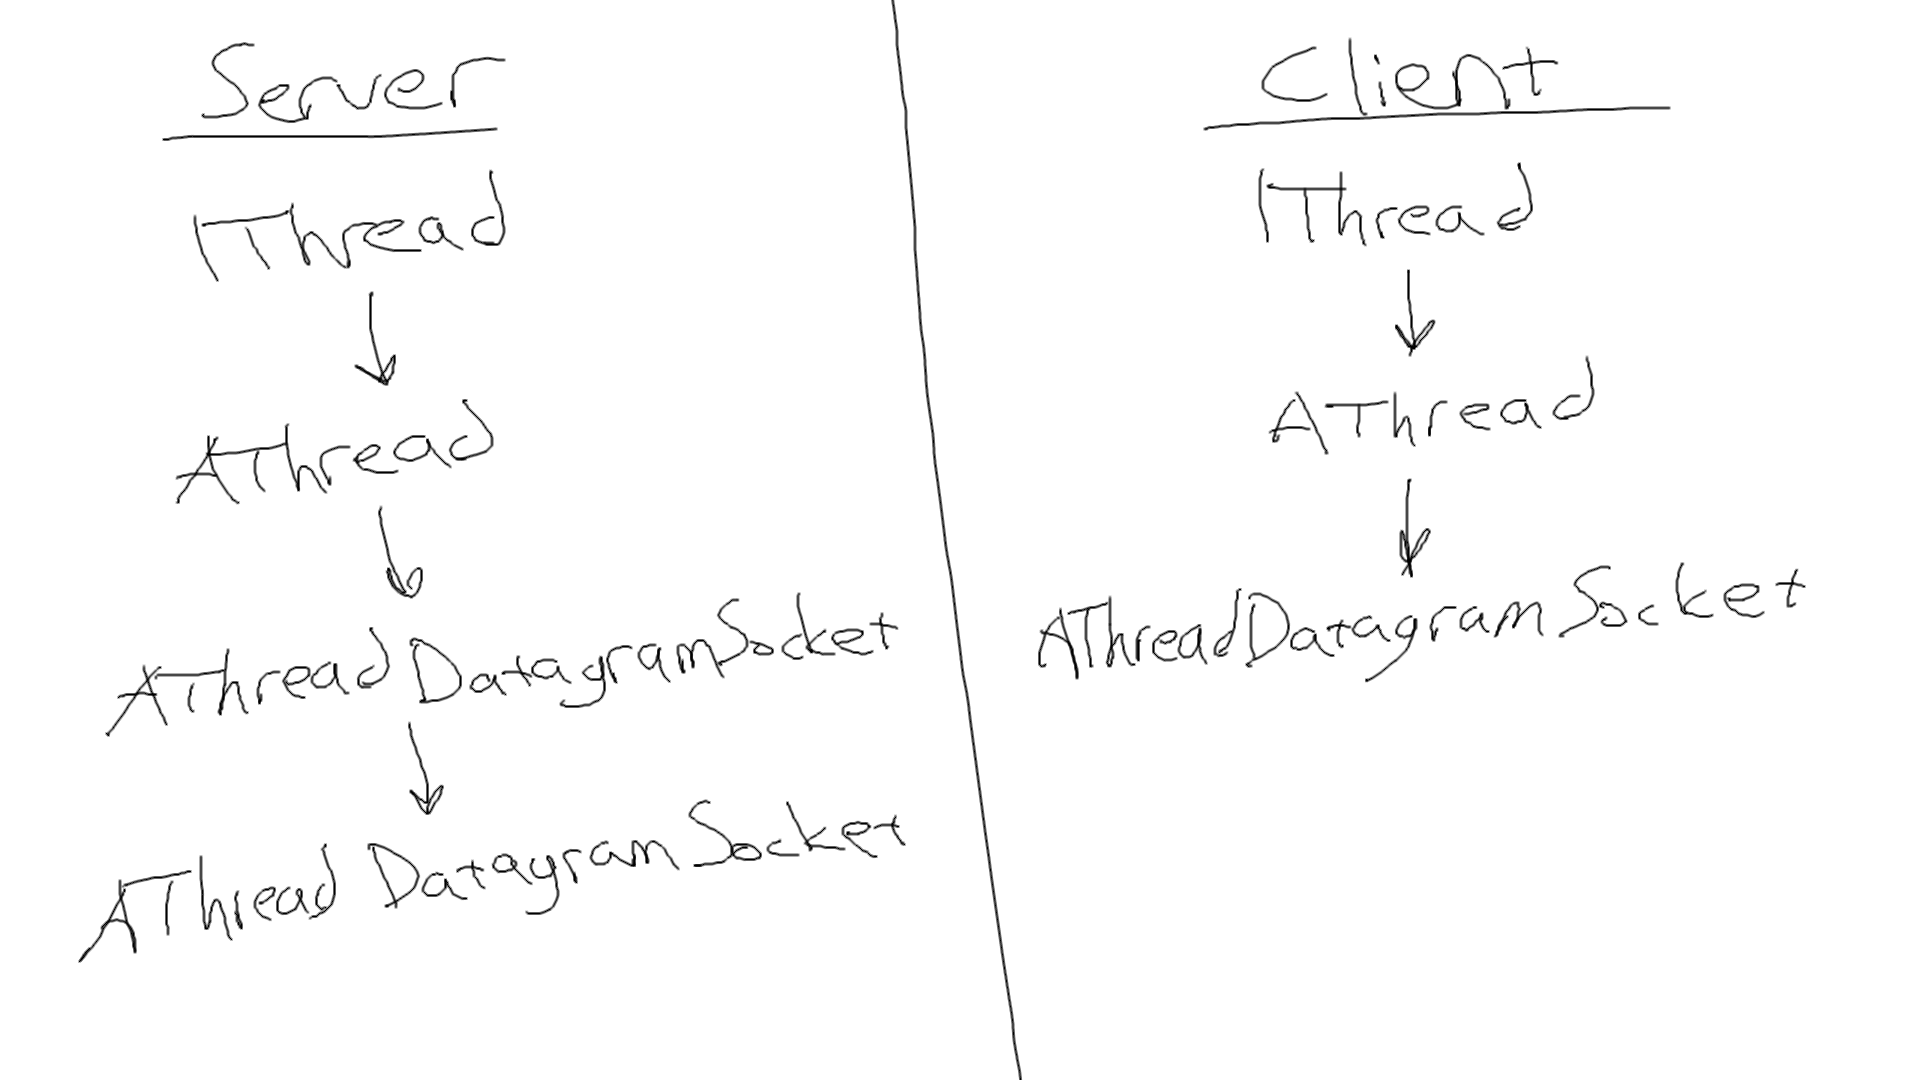 Server
IThread
AThread
AThreadDatagramSocket
AThread DatagramSocket
Client
IThread
AThread
AThreadDatagramSocket